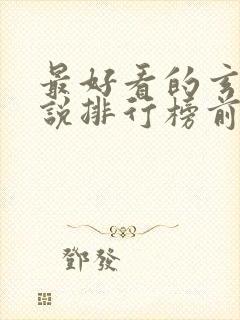 最好看的玄
說排行榜前
鄧發